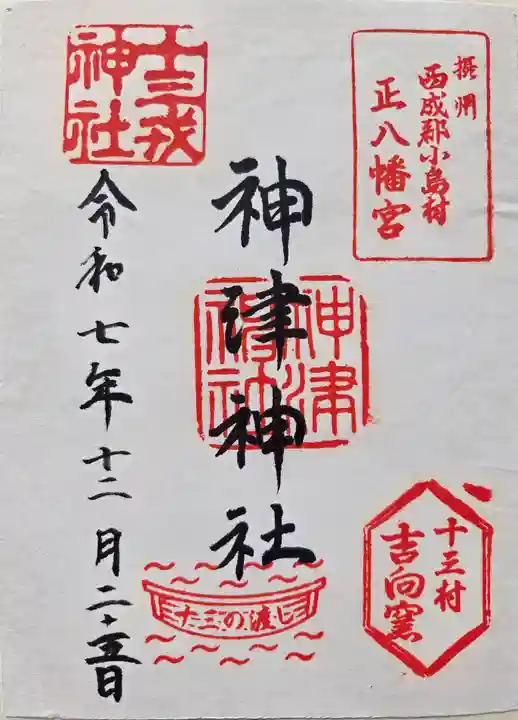 摂州
西成郡小島村
正八幡宮
神津神社
神津
神社
十三戎
神社
令和七年十二月二十五日
十三村
吉向窯
十三の渡し